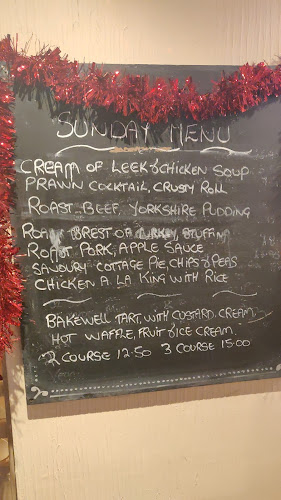 SUNDAY MENU
CREAM OF LEEK & CHICKEN SOUP
PRAWN COCKTAIL, CRUSTY ROLL
ROAST BEEF, YORKSHIRE PUDDING
ROAST BREST OF TURKEY, STUFFING
ROAST PORK, APPLE SAUCE
SAVOURY COTTAGE PIE, CHIPS & PEAS
CHICKEN A. LA KING WITH RICE
BAKEWELL TART, WITH CUSTARD, CREAM
HOT WAFFLE, FRUIT & ICE CREAM.
2 COURSE 12.50 3 COURSE 15.00